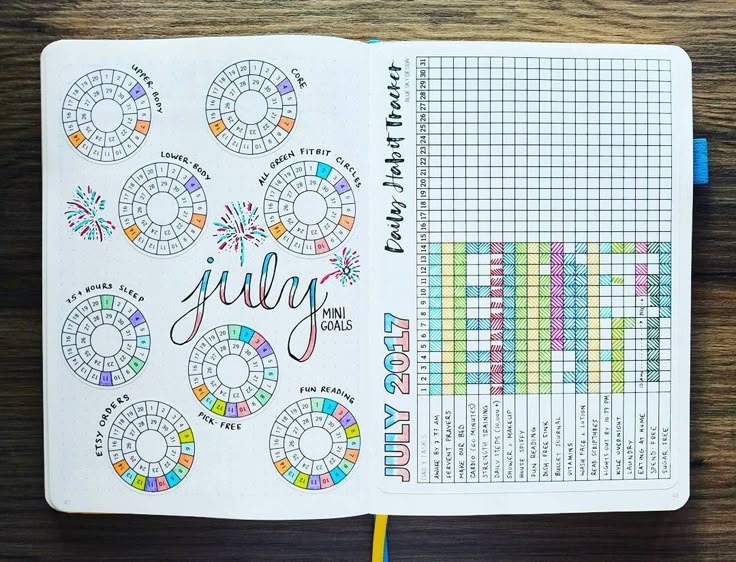 UPPER-BODY
CORE
LOWER-BODY
ALL GREEN FITBIT CIRCLES
7.5+ HOURS SLEEP
july
MINI
GOALS
PICK-FREE
ETSY ORDERS
FUN READING
JULY 2017
Daily Habit Tracker
1 2 3 4 5 6 7 8 9 10 11 12 13 14 15 16 17 18 19 20 21 22 23 24 25 26 27 28 29 30 31
DAILY TASKS
FERVENT PRAYERS
MAKE OUR BED
CARDIO (20 MINUTES)
STRENGTH TRAINING
DAILY STEPS (10,000+)
SHOWER + MAKEUP
HOUSE SPIFFY
FUN READING
DISH FREE SINK
BULLET JOURNAL
VITAMINS
WASH FACE + LOTION
READ SCRIPTURES
LAUNDRY
EATING AT HOME
SPEND FREE
SUGAR FREE